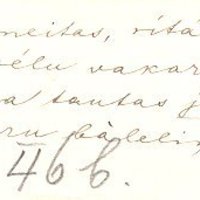 neitas, rītā
vēlu vakar
a tautas j
ru bāleliņ
II
466.